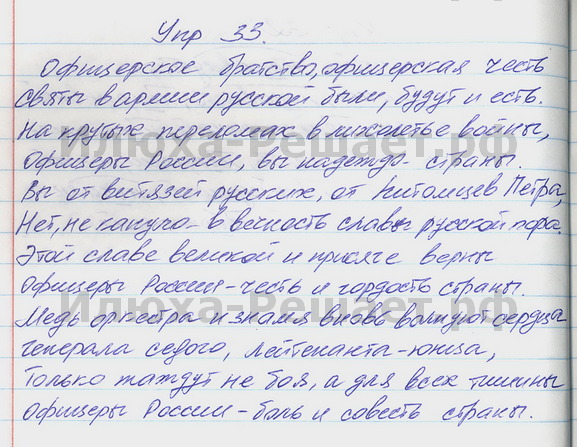 Упр 33.
Офицерское братство, офицерская честь
святы в армии русской были, будут и есть.
На крутых переломах в лихолетье войны,
Офицеры России, вы надежда страны.
Вы от витязей русских, от питомцев Петра,
Нет, не канула в вечность славы русской пора.
Этой славе великой и присяге верны
Офицеры России - честь и гордость страны.
Медь оркестра и знамя вновь волнуют сердца
генерала седого, лейтенанта-юнца,
Только жаждут не боя, а для всех тишины
Офицеры России - боль и совесть страны.
Илюха-Решает.рф
Илюха-Решает.рф